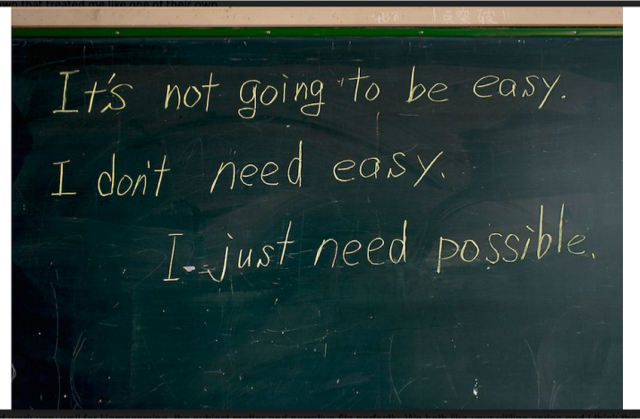 It's not going to be easy.
I don't need easy.
I just need possible.